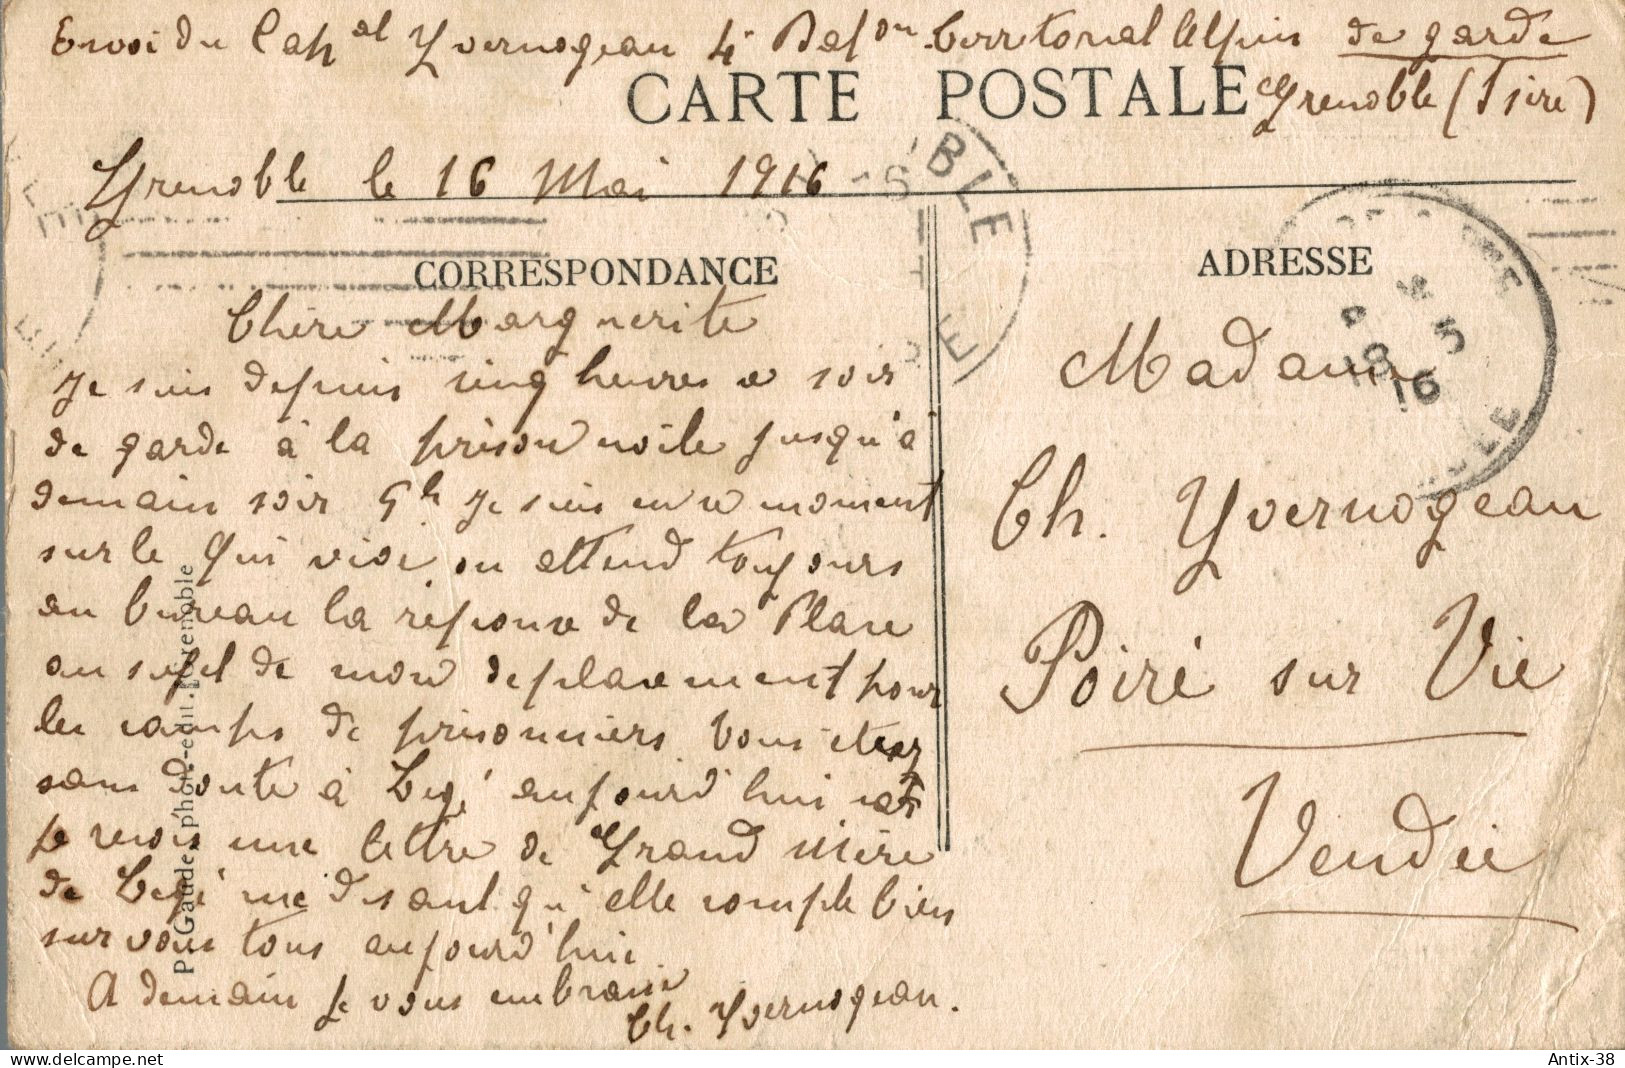 Envoi du Cap al Yvernogeau 4e Batон Territorial Alpin de garde
CARTE POSTALE
Grenoble (Isère)
Grenoble le 16 Mai 1916
CORRESPONDANCE
ADRESSE
Chère Marguerite
Je suis depuis cinq heures ce soir
de garde à la prison civile jusqu'à
demain soir 5h Je suis en ce moment
sur le qui vive on attend toujours
au bureau la réponse de la Place
au sujet de mon deplacement pour
les camps de prisonniers Vous étiez
sans doute à Legé aujourd'hui car
je reçois une lettre de Grand mère
de Legé me disant qu'elle compte bien
sur vous tous aujourd'hui
A demain je vous embrasse
Ch. Yvernogeau.
Madame
Ch. Yvernogeau
Poiré sur Vie
Vendée
P. Gaude, phot-edit. Grenoble
BLE
18 5
16
Antix-38